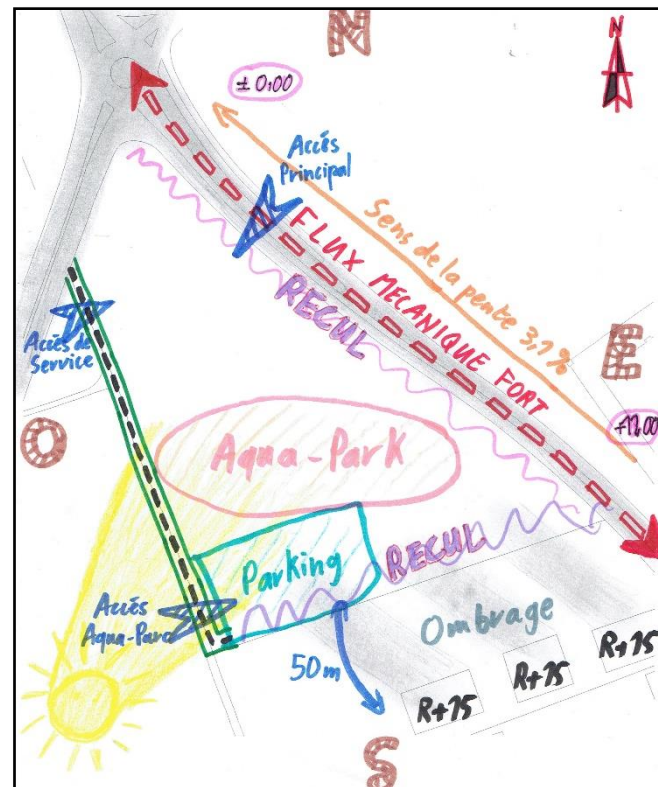 N
N
± 0.00
Accès
Principal
Sens de la pente 3,1%
FLUX MECANIQUE FORT
RECUL
E
Accès de
Service
O
+12.00
Aqua-Park
Parking
RECUL
Ombrage
Accès
Aqua-Parc
50m
R+15
R+15
R+15
S